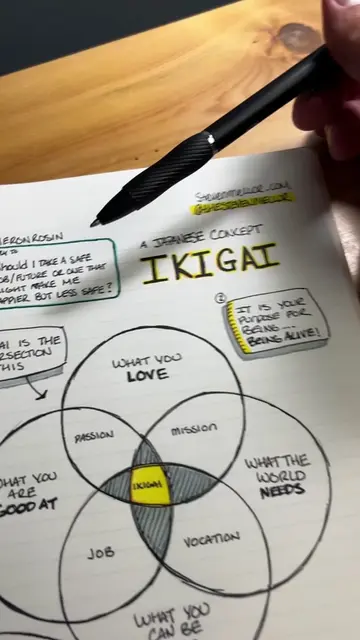 stevenmellor.com
@thestevenmellor
A JAPANESE CONCEPT
IKIGAI
SHOULD I TAKE A SAFE
JOB/FUTURE OR ONE THAT
MIGHT MAKE ME
HAPPIER BUT LESS SAFE?
② IT IS YOUR
PURPOSE FOR
BEING...
BEING ALIVE!
IS THE
THIS
WHAT YOU
LOVE
PASSION
MISSION
WHAT YOU
ARE
GOOD AT
IKIGAI
WHAT THE
WORLD
NEEDS
JOB
VOCATION
WHAT YOU
CAN BE